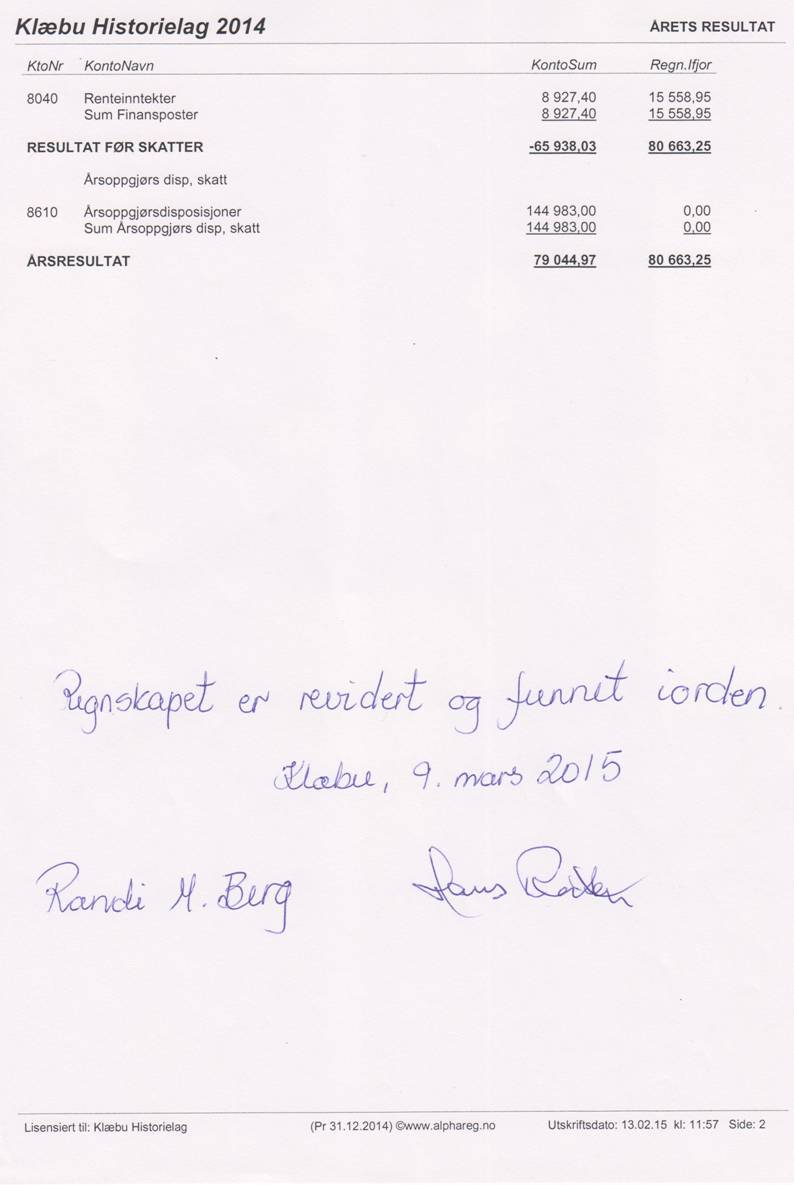 Klæbu Historielag 2014 ÅRETS RESULTAT
KtoNr KontoNavn KontoSum Regn.Ifjor
8040 Renteinntekter 8 927,40 15 558,95
Sum Finansposter 8 927,40 15 558,95
RESULTAT FØR SKATTER -65 938,03 80 663,25
Årsoppgjørs disp, skatt
8610 Årsoppgjørsdisposisjoner 144 983,00 0,00
Sum Årsoppgjørs disp, skatt 144 983,00 0,00
ÅRSRESULTAT 79 044,97 80 663,25
Regnskapet er revidert og funnet iorden.
Klæbu, 9. mars 2015
Randi M. Berg Hans
Lisensiert til: Klæbu Historielag (Pr 31.12.2014) ©www.alphareg.no Utskriftsdato: 13.02.15 kl: 11:57 Side: 2